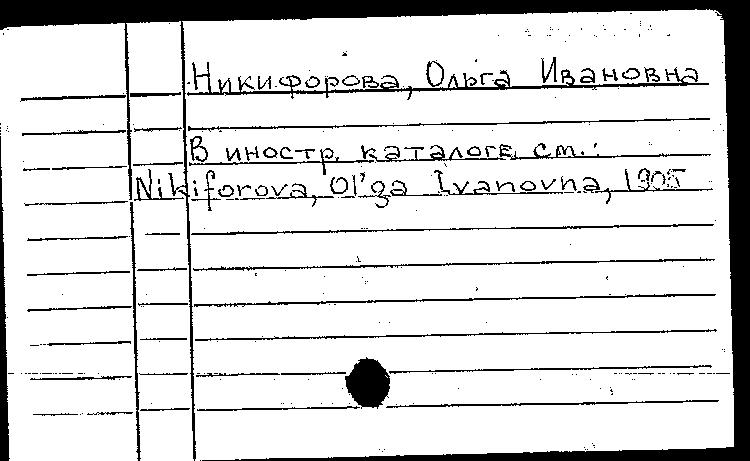 Никифорова, Ольга Ивановна
В иностр. каталоге см.:
Nikiforova, Ol'ga Ivanovna, 1905